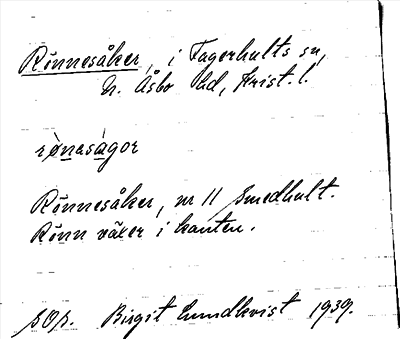 Rönnesåker, i Fagerhults sn,
N. Åsbo hd, Krist. l.
rønasågor
Rönnesåker, nr 11 Smedhult.
Rönn växer i kanten.
SOp. Birgit Lundkvist 1939.